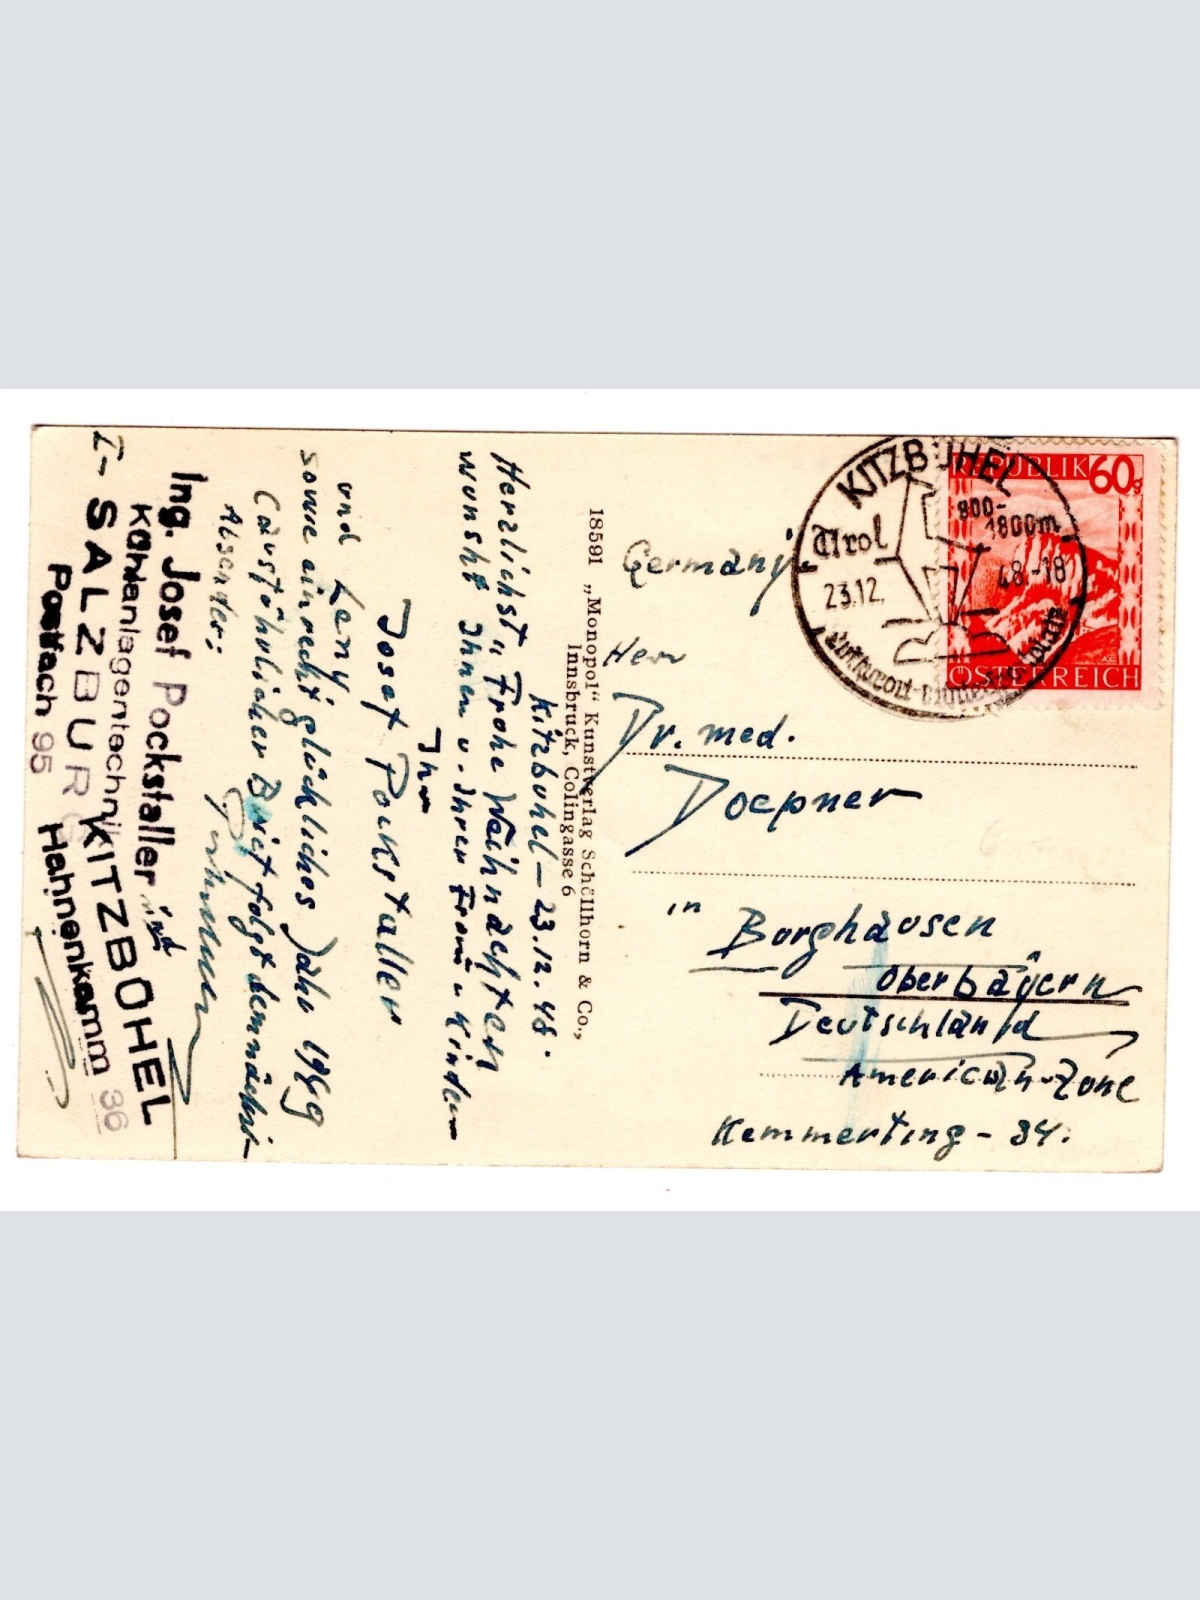 Kitzbühel - 23.12.48.
Herzlichst "Frohe Weihnachten
wünscht Ihnen u. Ihrer Frau u Kindern
Ihr
Josef Pockstaller
und Leny
sowie ein recht glückliches Jahr 1949
(ausführlicher Brief folgt demnächst
Absender:
Ing. Josef Pockstaller
Kühlanlagentechnik
I- SALZBURG KITZBÜHEL
Postfach 95 Hahnenkamm 36
18591 „Monopol“ Kunstverlag Schöllhorn & Co.,
Innsbruck, Colingasse 6
KITZBÜHEL
Tirol
800-
1800m
23.12. 48.-18
REPUBLIK 60g
ÖSTERREICH
Germany.
Herr
Dr. med.
Doepner
in Burghausen
Oberbayern
Deutschland
American-Zone
Kemmerting - 34.